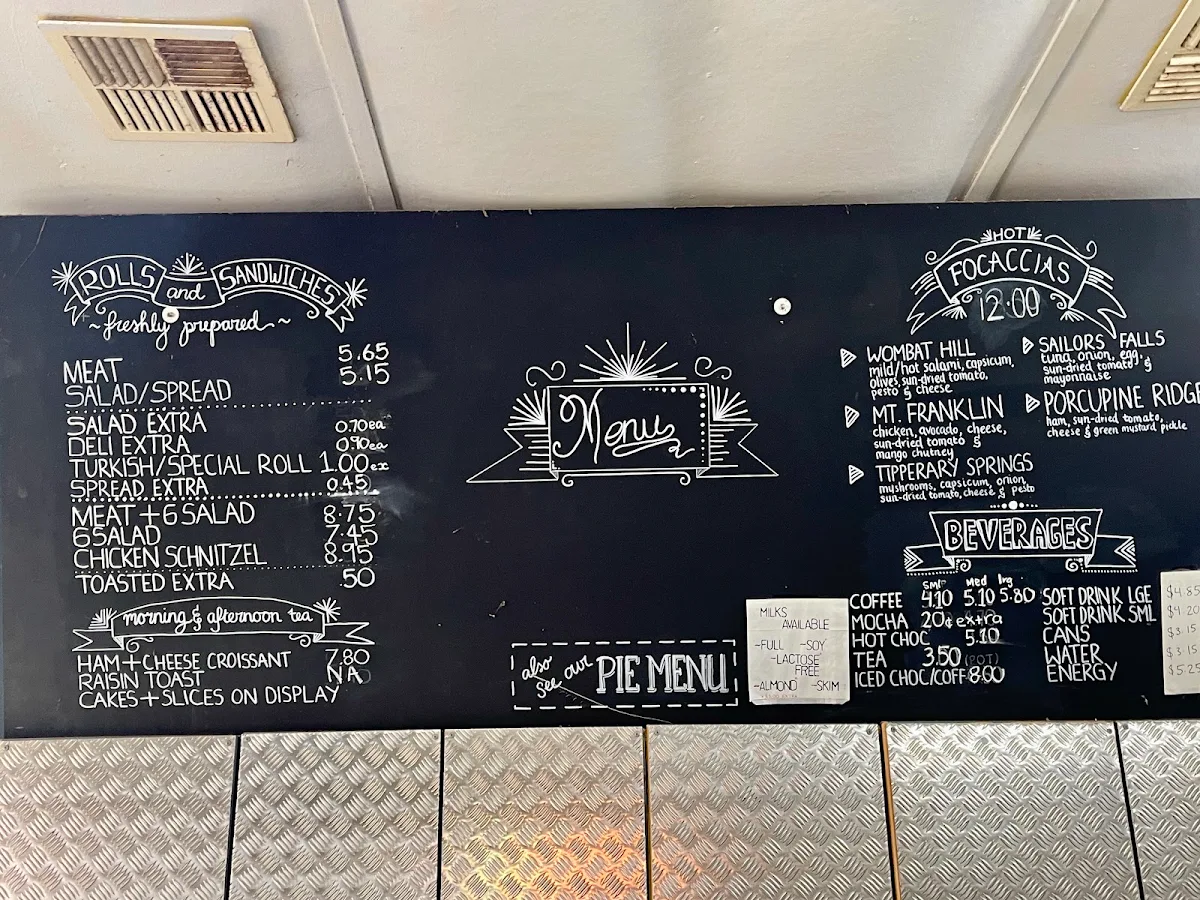 ROLLS and SANDWICHES
~freshly prepared~
MEAT 5.65
SALAD/SPREAD 5.15
SALAD EXTRA 0.70ea
DELI EXTRA 0.90ea
TURKISH/SPECIAL ROLL 1.00ex
SPREAD EXTRA 0.45
MEAT + 6 SALAD 8.75
6 SALAD 7.45
CHICKEN SCHNITZEL 8.95
TOASTED EXTRA 50
morning & afternoon tea
HAM + CHEESE CROISSANT 7.80
RAISIN TOAST NA
CAKES + SLICES ON DISPLAY
Menu
also see our PIE MENU
HOT
FOCACCIAS
12.00
WOMBAT HILL
mild/hot salami, capsicum,
olives, sun-dried tomato,
pesto & cheese
MT. FRANKLIN
chicken, avocado, cheese,
sun-dried tomato &
mango chutney
TIPPERARY SPRINGS
mushrooms, capsicum, onion,
sun-dried tomato, cheese & pesto
SAILORS FALLS
tuna, onion, egg,
sun-dried tomato &
mayonnaise
PORCUPINE RIDGE
ham, sun-dried tomato,
cheese & green mustard pickle
BEVERAGES
Sml Med lrg
COFFEE 4.10 5.10 5.80
MOCHA 20¢ extra
HOT CHOC 5.10
TEA 3.50 (POT)
ICED CHOC/COFF 8.00
SOFT DRINK LGE $4.85
SOFT DRINK SML $4.20
CANS $3.15
WATER $3.15
ENERGY
MILKS
AVAILABLE
-FULL -SOY
-LACTOSE
FREE
-ALMOND -SKIM